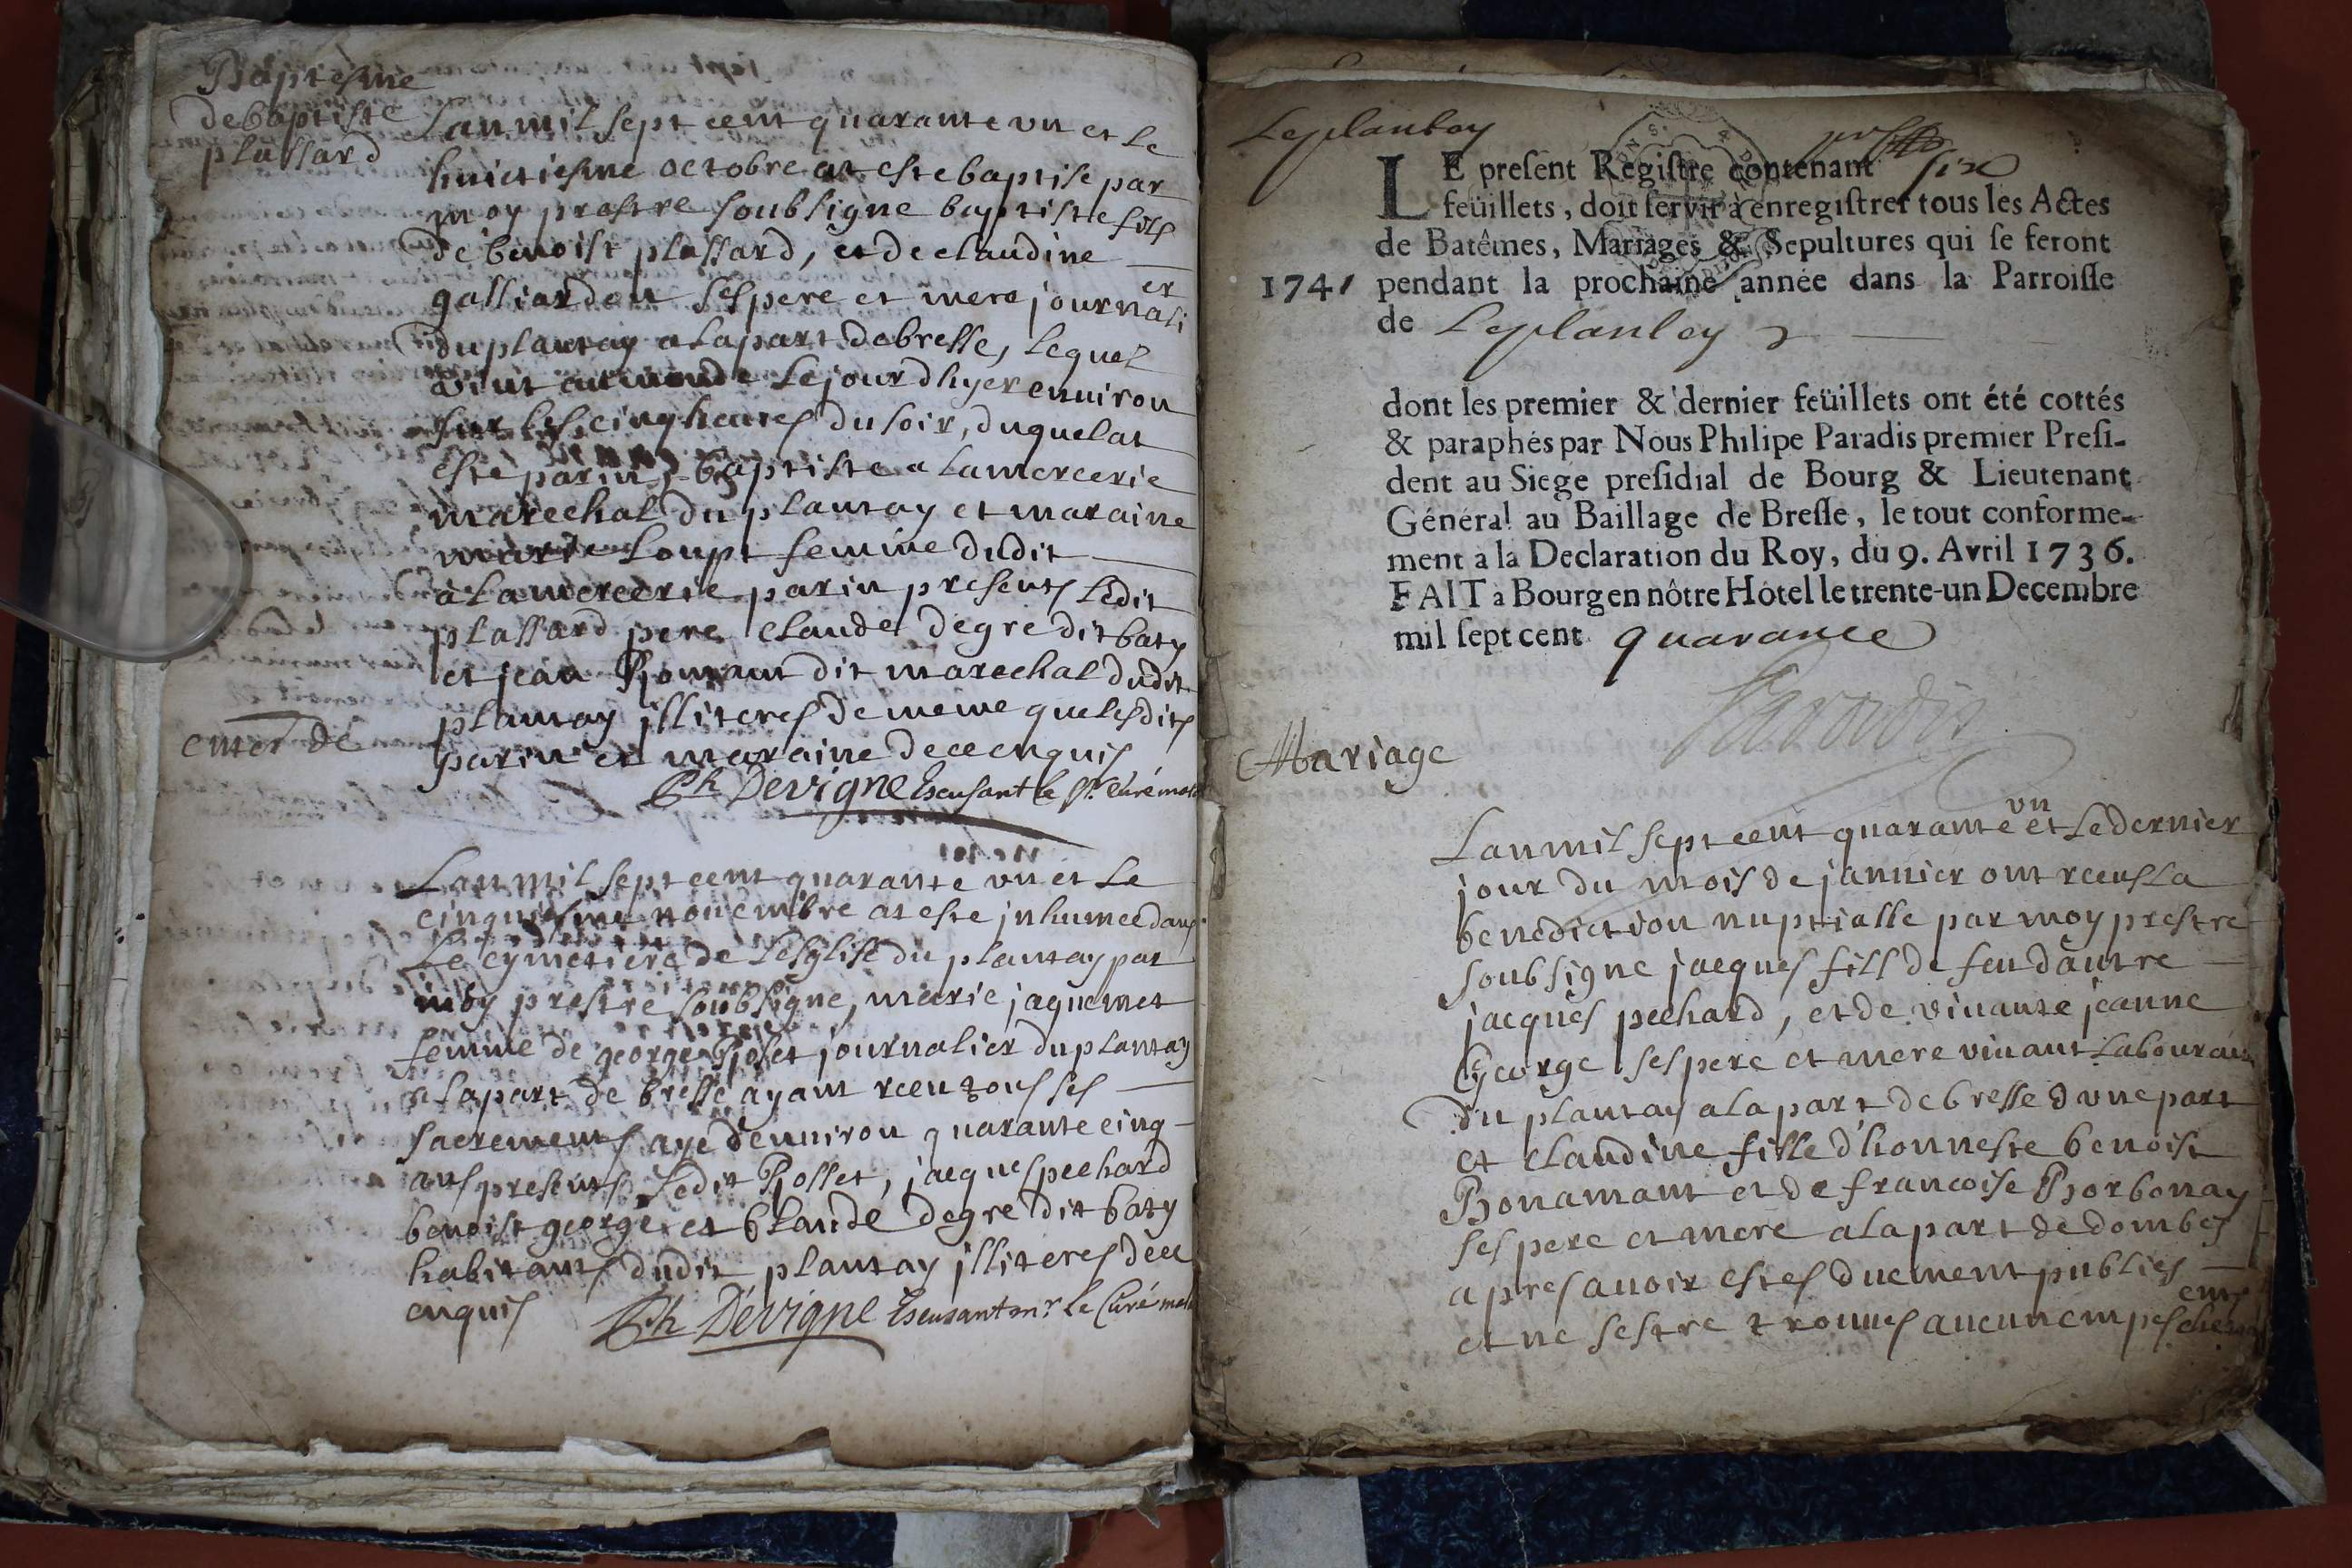 Baptesme
de baptiste
plassard
Lan mil sept cent quarante vn et le
huictiesme octobre at este baptise par
moy prestre soubsigne baptiste fils
de benoist plassard, et de claudine
galliardon ses pere et mere journali er
du plantay a la part de bresse, lequel
vint au monde le jour dhyer enuiron
sur les cinq heures du soir, duquel at
este parin, baptiste a Lamercerie
marechal du plantay et maraine
marie Loupt femme dudit
a Lamercerie parin presents ledit
plassard pere claude degre dit baty
et jean Bonnant dit marechal dudit
plantay jlliteres de meme que lesdits
parin et maraine de ce enquis
Ph Devigne Escusant le Sr. Curé
enter de
Lan mil sept cent quarante vn et le
cinquiesme nouembre at este jnhumee dans
Le cymetiere de Lesglise du plantay par
moy prestre soubsigne, marie jaquemet
femme de george Bollet journalier du plantay
a la part de bresse ayant receu tous ses
sacrements agé denuiron quarante cinq
ans presents ledit Bollet, jacques pechard
benoist george et Claude degre dit baty
habitants dudit plantay jlliteres de ce
enquis
Ph Dévigne Escusant mr. Le Curé
Leplantay
LE present Registre contenant six
feüillets, doit servir à enregistrer tous les Actes
de Batêmes, Mariages & Sepultures qui se feront
1741 pendant la prochaine année dans la Parroisse
de Leplantey
dont les premier & dernier feüillets ont été cottés
& paraphés par Nous Philipe Paradis premier Presi-
dent au Siege presidial de Bourg & Lieutenant
Général au Baillage de Bresse, le tout conforme-
ment a la Declaration du Roy, du 9. Avril 1736.
FAIT à Bourg en nôtre Hôtel le trente-un Decembre
mil sept cent quarante
Paradis
Mariage
Lan mil sept cent quarante vn et le dernier
jour du mois de januier ont receus la
benediction nuptialle par moy prestre
soubsigne jacques fills de feu dautre
jacques pechard, et de viuante jeanne
George ses pere et mere viuant Laboureur
du plantay a la part de bresse dvne part
et claudine fille d'honneste benoist
Bonamant et de francoise Borbonay
ses pere et mere a la part de dombes
apres auoir estes duement publies
et ne sestre trouues aucun empeschement